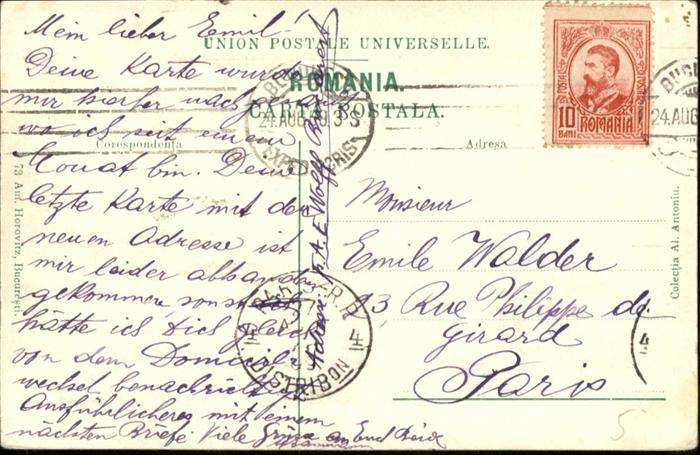 Mein lieber Emil!
Deine Karte wurde
mir hierher nach
wo ich seit einem
Monat bin. Deine
letzte Karte mit der
neuen Adresse ist
mir leider abhanden
gekommen, sonst
hätte ich Dich gleich
von dem Domicil-
wechsel benachrichtigt
Ausführlicheres mit einem
nächsten Briefe. Viele Grüsse an Euch Beide
UNION POSTALE UNIVERSELLE.
ROMANIA.
CARTA POSTALA.
Corespondența
Adresa
24.AUG 09
EXP
Adresse p. A. E. Wolff Bucarest
10
BANI
ROMANIA
POSTA
BUC
24.AUG
Monsieur
Emile Walder
13, Rue Philippe de
Girard
Paris
PARIS R.P.
4
DISTRIBON
4
4
73 Ant. Horovitz, Bucuresti.
Colecția Al. Antoniu.
5